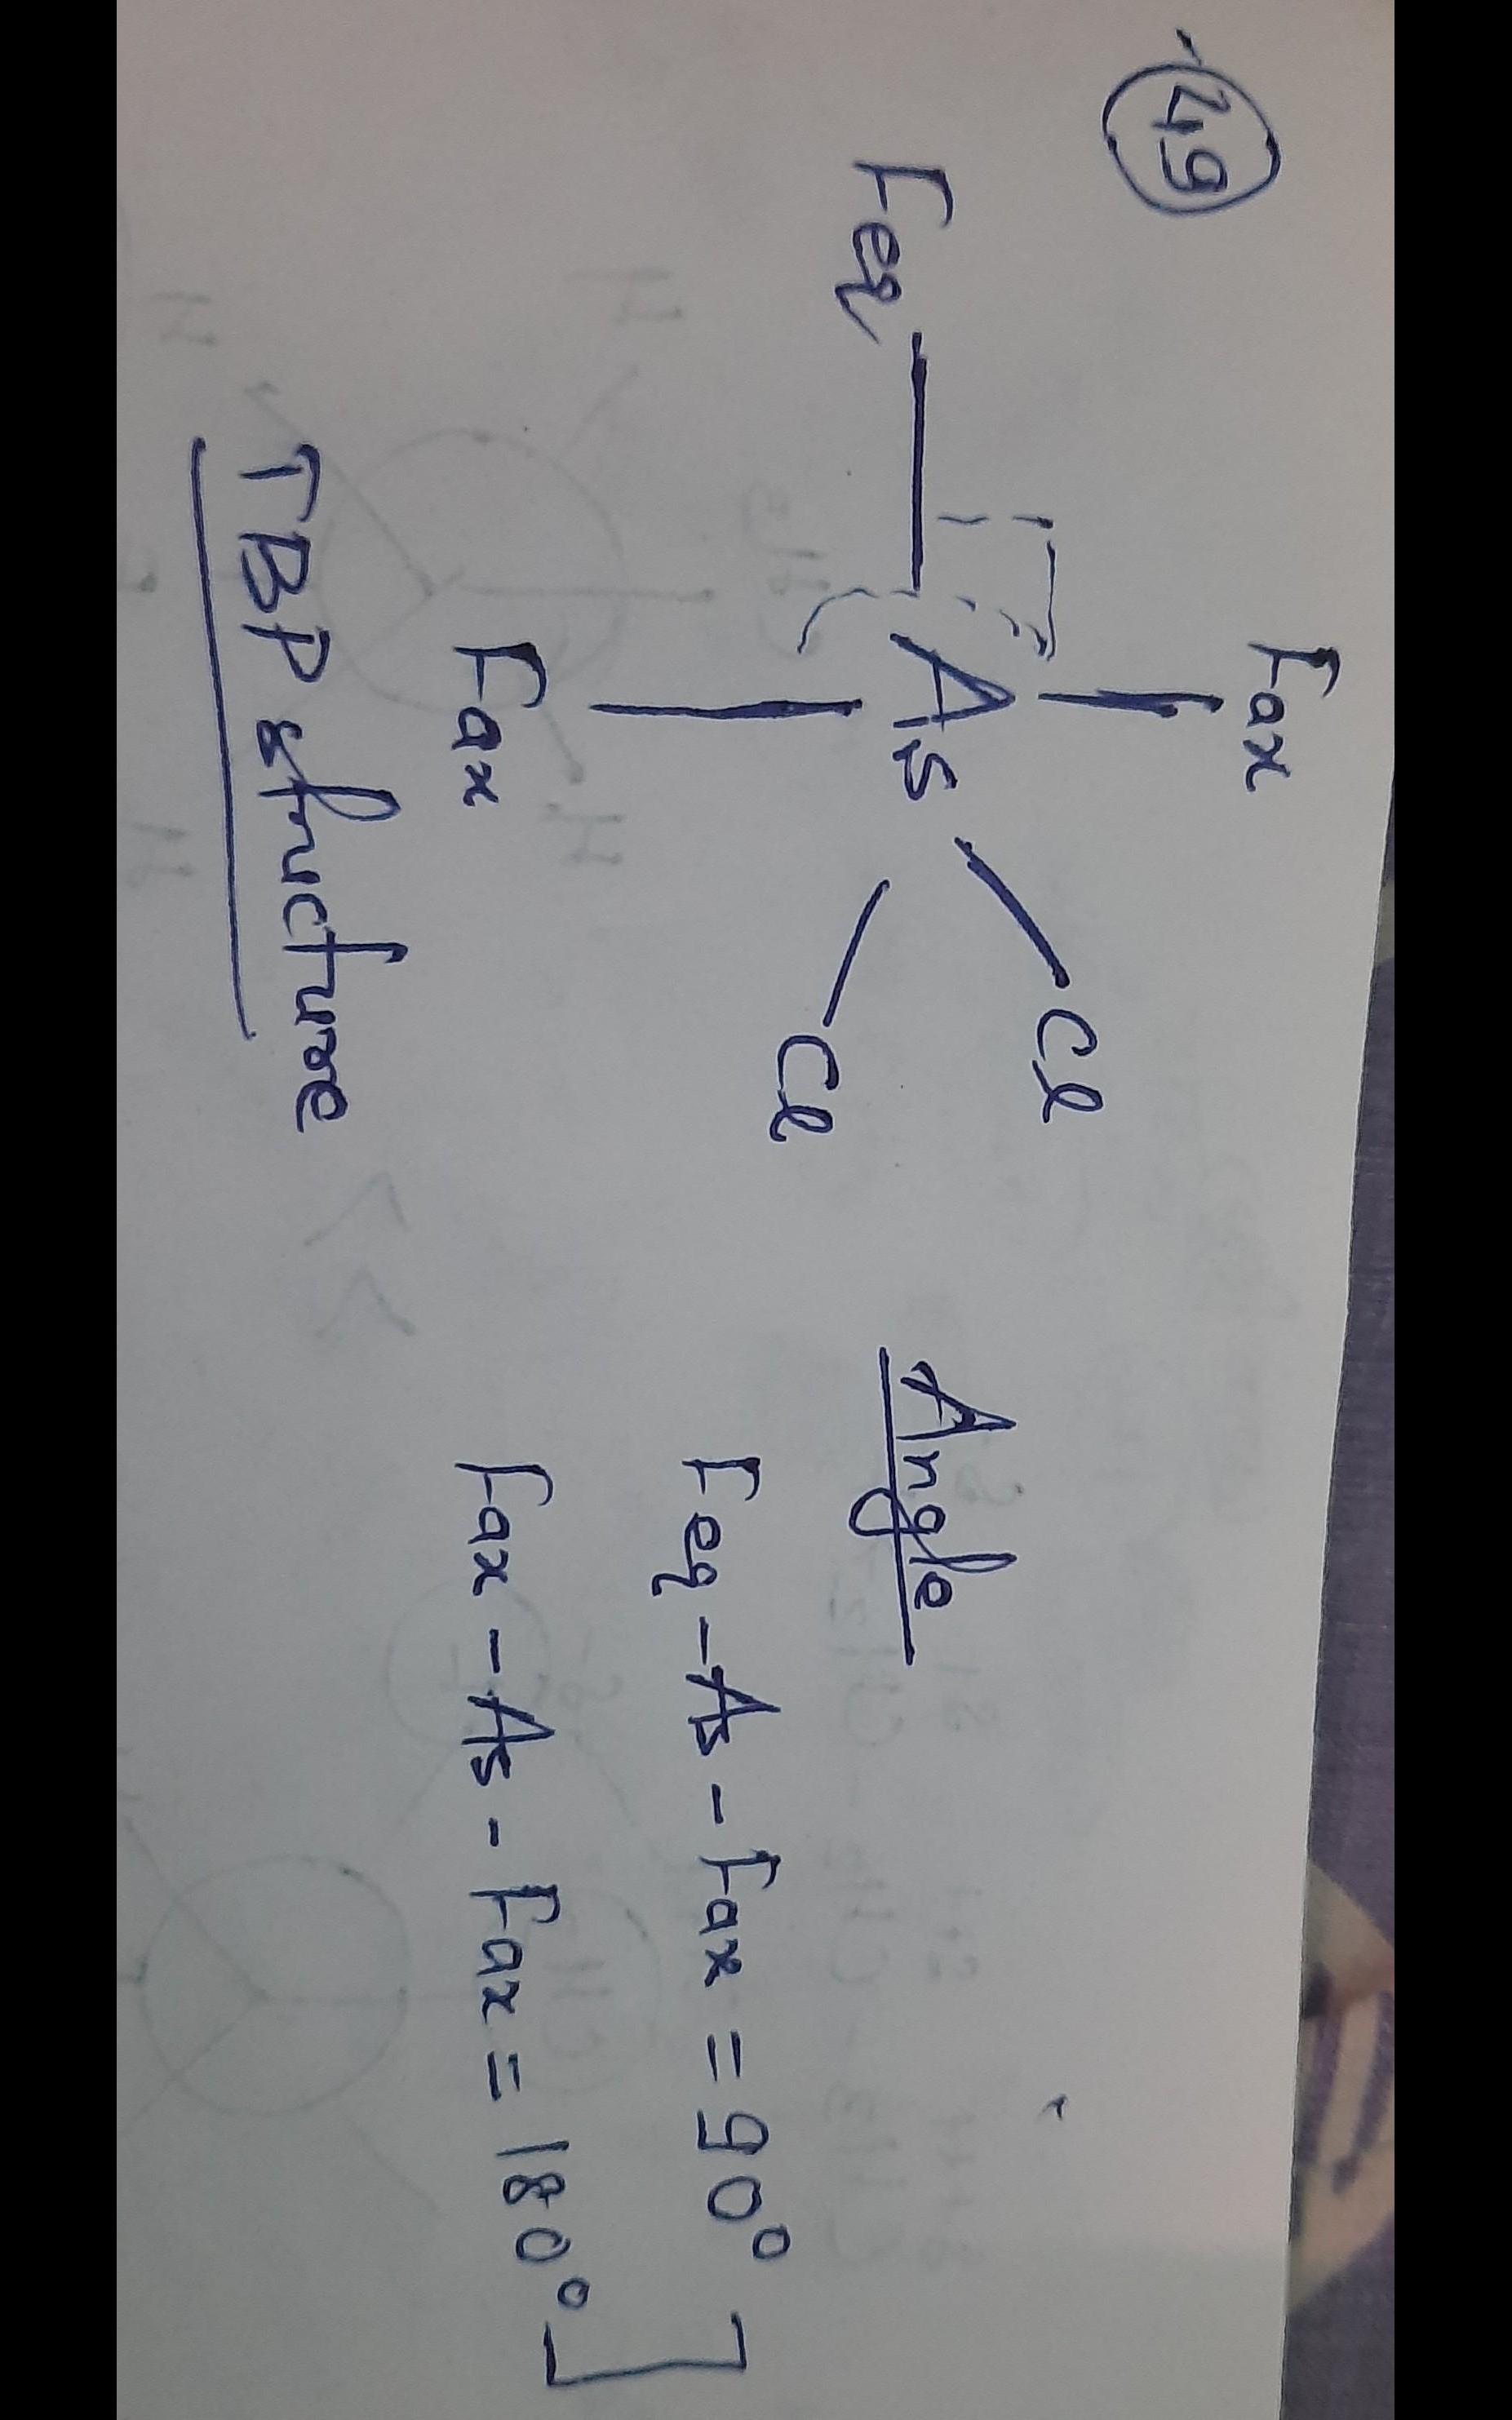 49
Fax
Feq
As
Cl
Cl
Fax
TBP structure
Angle
Feq - As - Fax = 90°
Fax - As - Fax = 180°